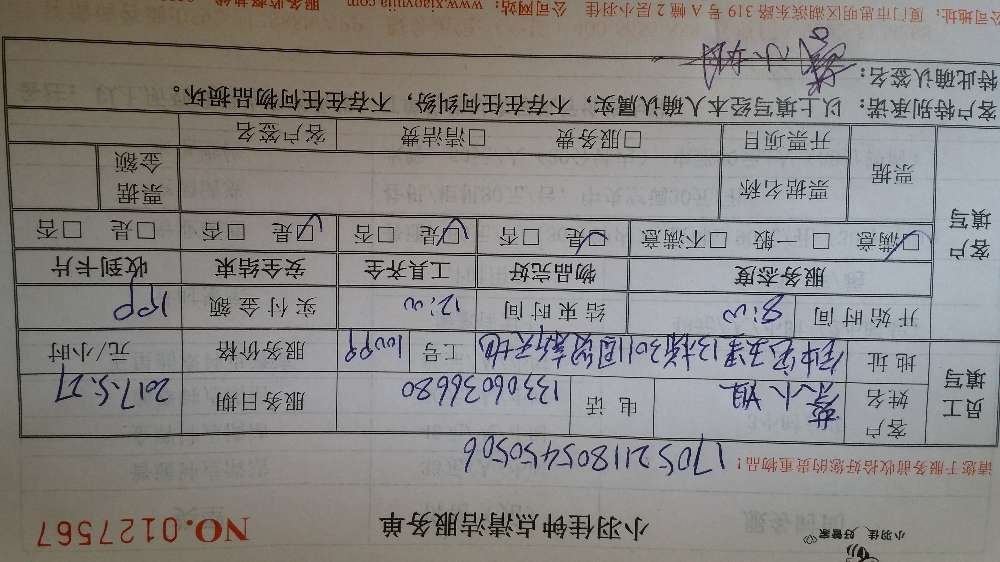 小羽佳、好管家
小羽佳钟点清洁服务单
NO.0127567
请您于服务前收拾好您的贵重物品！
170521180545050506
员工填写
客户姓名 蔡小姐 电话 13306036680 服务日期 2017.5.27
地址 工号 服务价格 元/小时
开始时间 8:00 结束时间 12:00 实付金额
客户填写
服务态度 物品完好 工具齐全 安全结束 收到卡片
☑满意 □一般 □不满意 ☑是 □否 ☑是 □否 ☑是 □否 □是 □否
票据 票据名称 票据金额
开票项目 □服务费 □清洁费 客户签名
客户特别承诺：以上填写经本人确认，实属真实，不存在任何纠纷，不存在任何物品损坏。
特此确认签名：
公司地址：厦门市思明区湖滨东路319号A幢2层小羽佳 公司网站：www.xiaoyujia.com